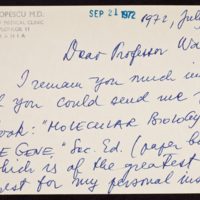 OPESCU M.D.
MEDICAL CLINIC
SEP 21 1972
1972, Jul
Dear Professor Wa
I remain you much in
f you could send me
ook: "MOLECULAR BIOLOGY
E GENE," Sec. Ed. (paper b
hich is of the greatest
est for my personal ins